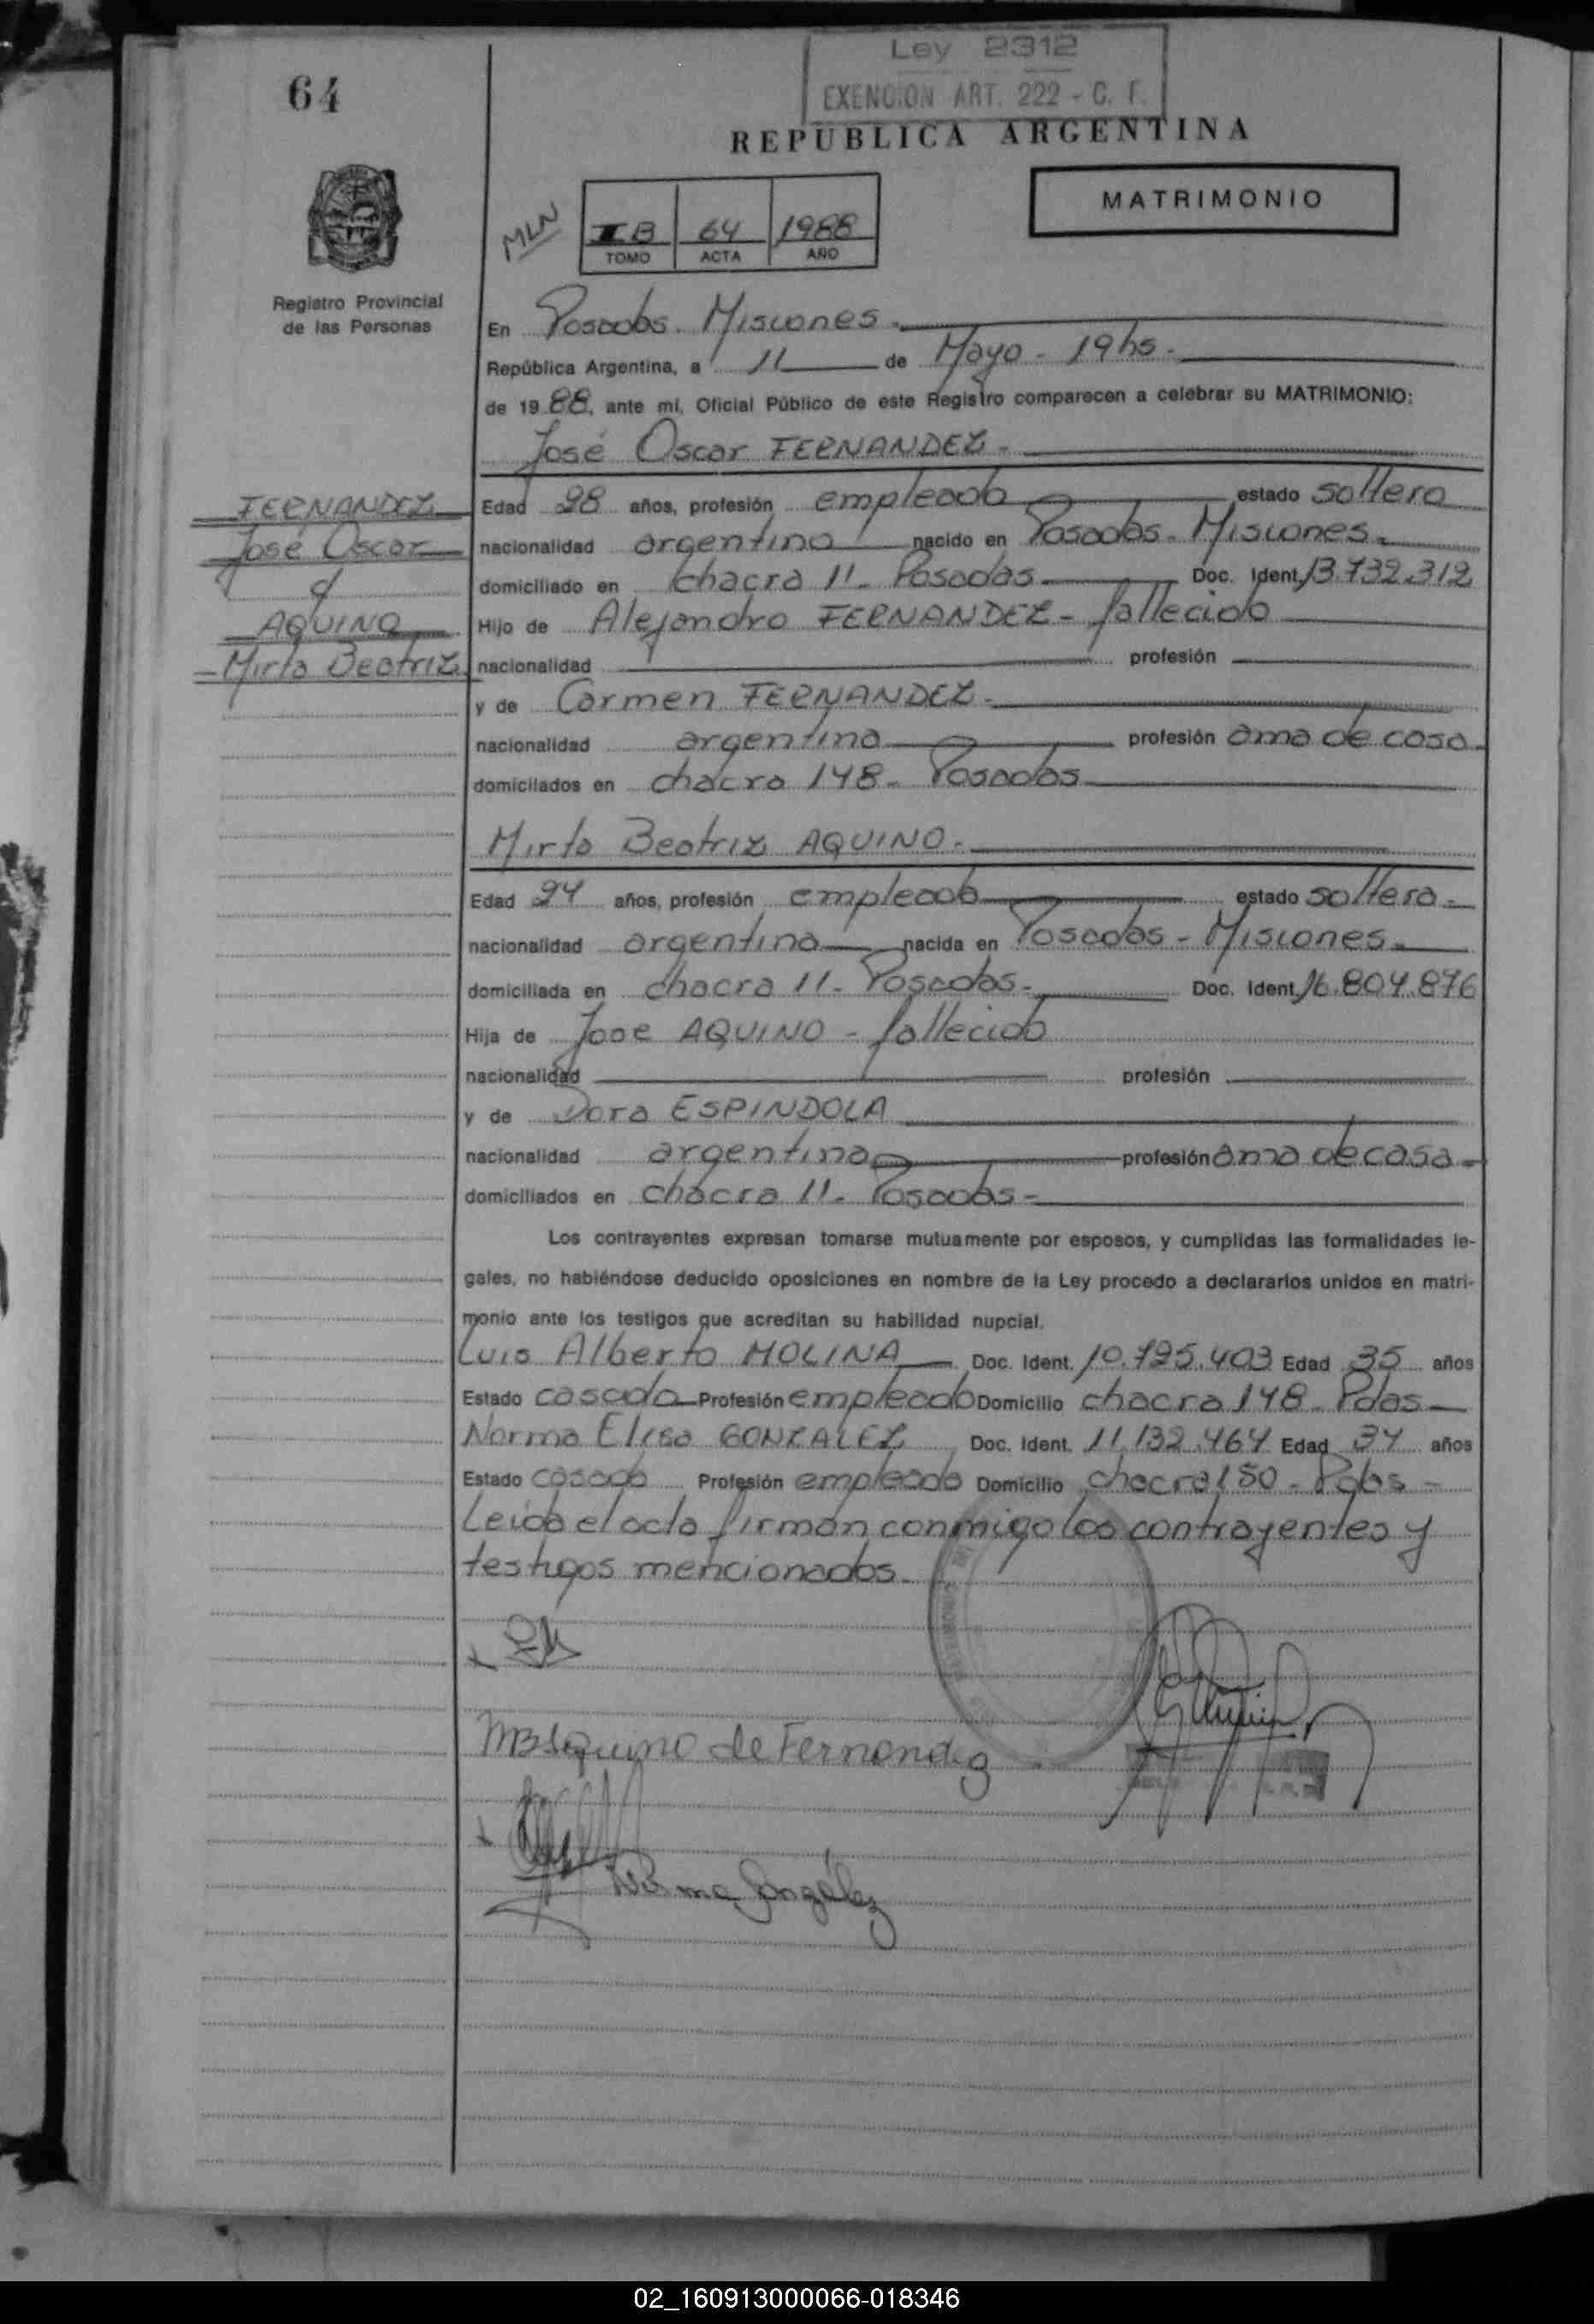 Ley 2312
EXENCION ART. 222 - C. F.
64
REPUBLICA ARGENTINA
MATRIMONIO
MLN
B 64 1988
TOMO ACTA AÑO
Registro Provincial
de las Personas
En Posadas. Misiones.
República Argentina, a 11 de Mayo - 19hs.
de 1988, ante mí, Oficial Público de este Registro comparecen a celebrar su MATRIMONIO:
José Oscar FERNANDEZ.
FERNANDEZ
José Oscar
c/
AQUINO
Mirta Beatriz
Edad 28 años, profesión empleado estado soltero
nacionalidad argentino nacido en Posadas. Misiones.
domiciliado en chacra 11. Posadas. Doc. Ident. 13.732.312
Hijo de Alejandro FERNANDEZ - fallecido
nacionalidad profesión
y de Carmen FERNANDEZ.
nacionalidad argentina profesión ama de casa.
domicilados en chacra 148. Posadas
Mirta Beatriz AQUINO.
Edad 24 años, profesión empleada estado soltera.
nacionalidad argentina nacida en Posadas - Misiones.
domiciliada en chacra 11. Posadas. Doc. Ident. 16.804.876
Hija de Jose AQUINO - fallecido
nacionalidad profesión
y de Dora ESPINDOLA
nacionalidad argentina profesión ama de casa.
domiciliados en chacra 11. Posadas -
Los contrayentes expresan tomarse mutuamente por esposos, y cumplidas las formalidades le-
gales, no habiéndose deducido oposiciones en nombre de la Ley procedo a declararlos unidos en matri-
monio ante los testigos que acreditan su habilidad nupcial.
Luis Alberto MOLINA Doc. Ident. 10.795.403 Edad 35 años
Estado casado Profesión empleado Domicilio chacra 148. Pdas
Norma Elisa GONZALEZ Doc. Ident. 11.132.464 Edad 34 años
Estado casada Profesión empleada Domicilio chacra 150 - Pdas -
Leída el acta firman conmigo los contrayentes y
testigos mencionados.
MBAquino de Fernandez
Norma González
02_160913000066-018346